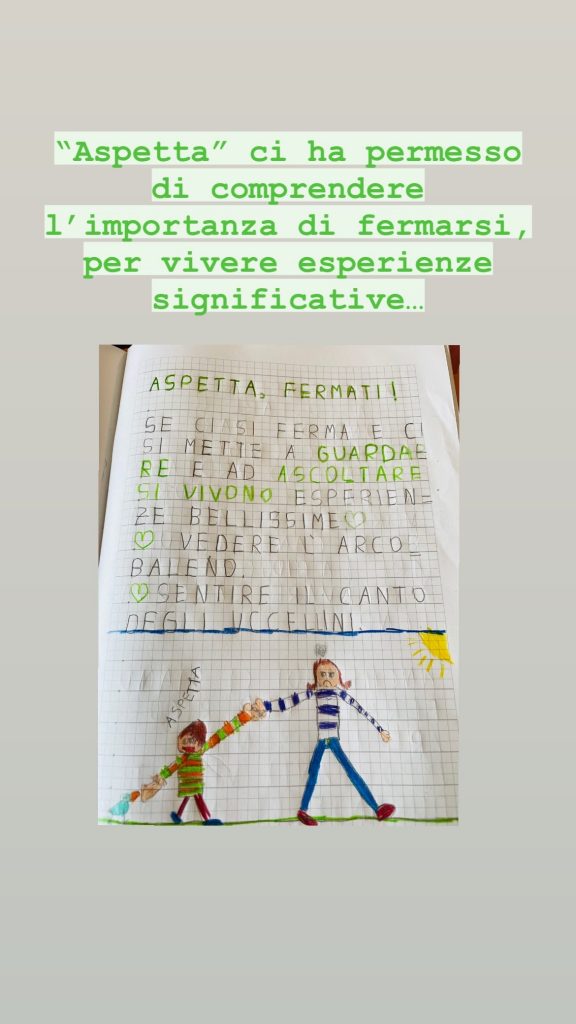 “Aspetta” ci ha permesso
di comprendere
l’importanza di fermarsi,
per vivere esperienze
significative…
ASPETTA, FERMATI!
SE CI SI FERMA E CI
SI METTE A GUARDA=
RE E AD ASCOLTARE
SI VIVONO ESPERIEN=
ZE BELLISSIME♡
♡ VEDERE L'ARCO=
BALENO.
♡ SENTIRE IL CANTO
DEGLI UCCELINI.
ASPETTA